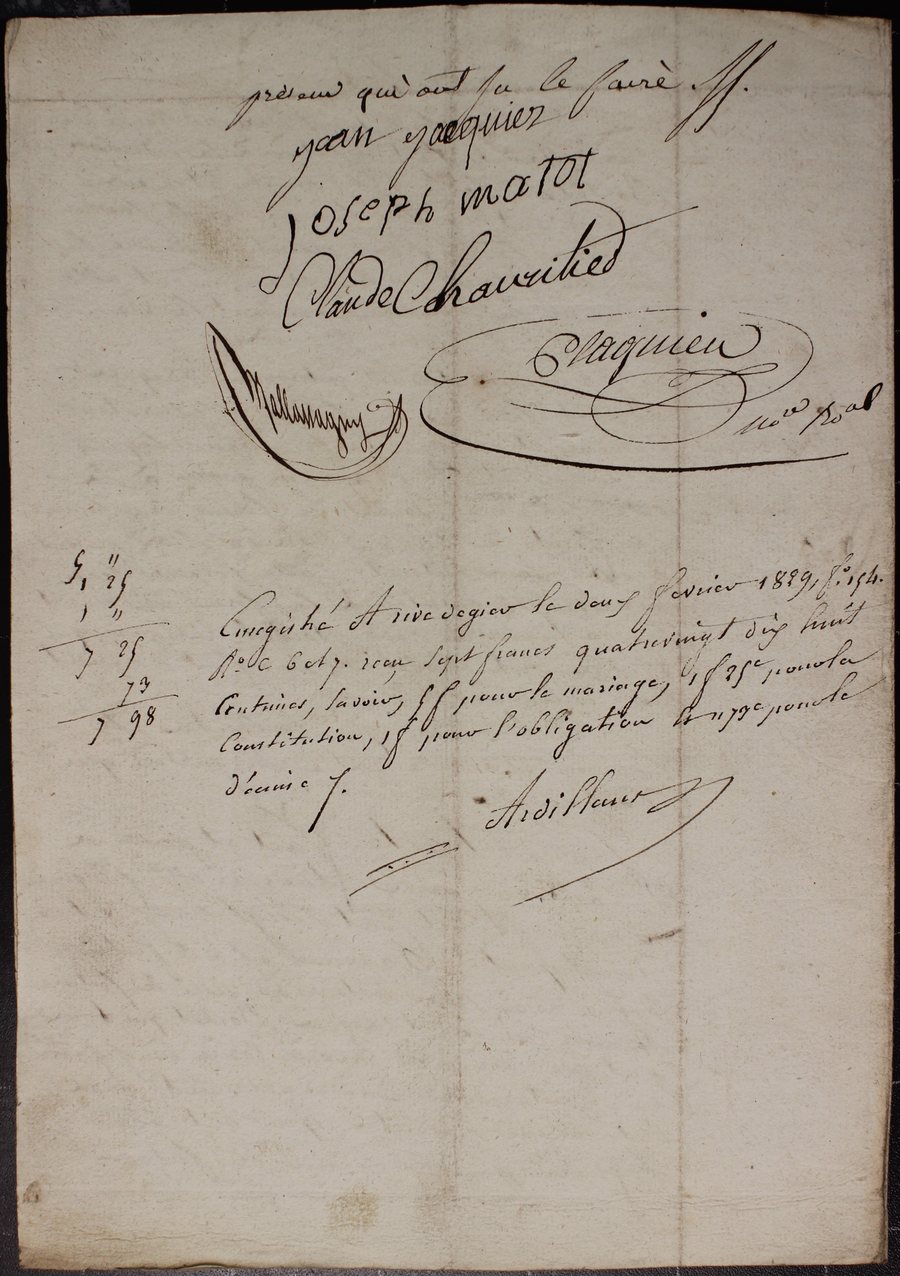 présent qui ont su le faire ff.
jean jacquier
Joseph matot
Claude Chavrilied
Plaquieu
Mallassagny
no.re Roal
5 "
1 25
1 "
7 25
73
7 98
Enregistré A rive de gier le deux fevrier 1829, f.o 154.
R.o C. 6 et 7. reçu sept francs quatrevingt dix huit
Centimes, savoir, 5f pour le mariage, 1f 25c pour la
Constitution, 1f pour l'obligation et "73c pour le
décime f.
Ardillaux